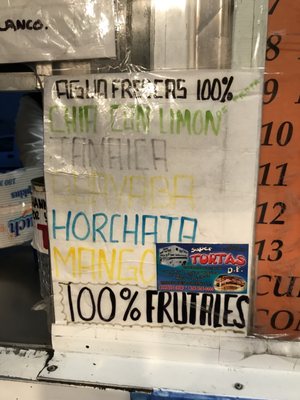 LANCO.
AGUA FRESCAS 100%
CHIA CON LIMON
JAMAICA
GUAYABA
HORCHATA
MANGO
SUPER
TORTAS
D.F.
100% FRUTALES
7
8
9
10
11
12
13
CU
CON